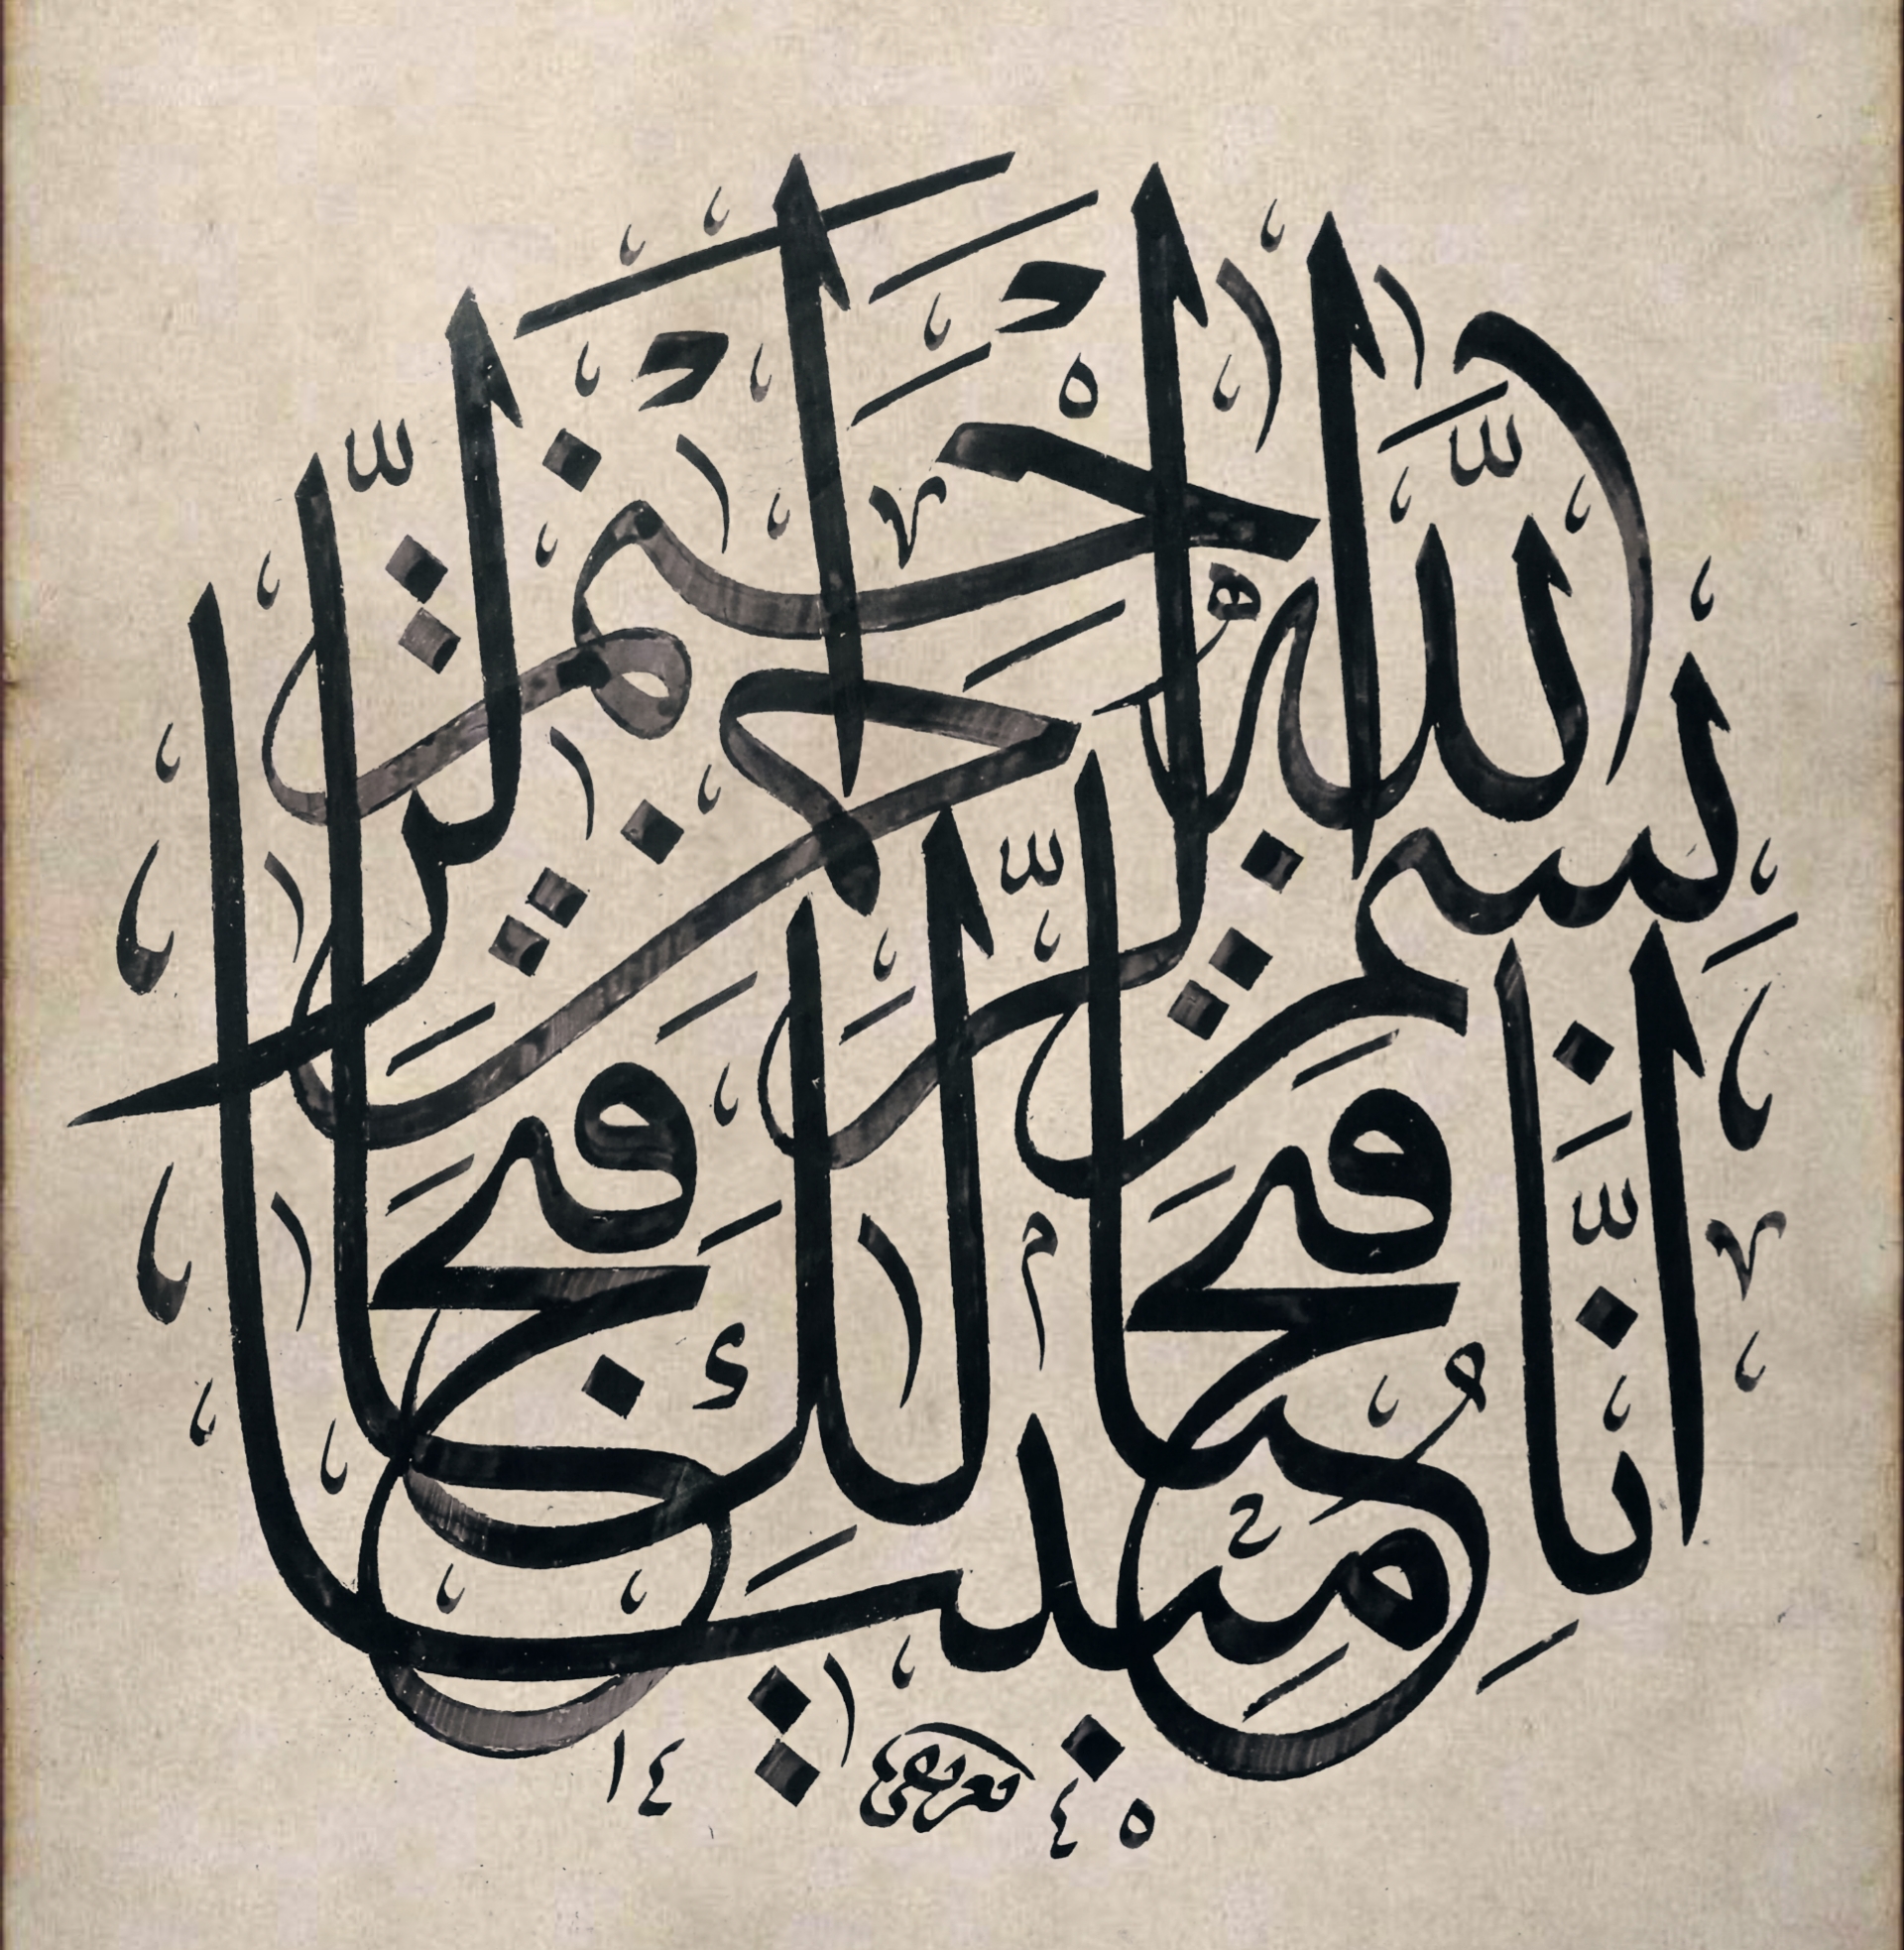 بسم الله الرحمن الرحيم
انا فتحنا لك فتحا مبينا
١٤ ٤٥